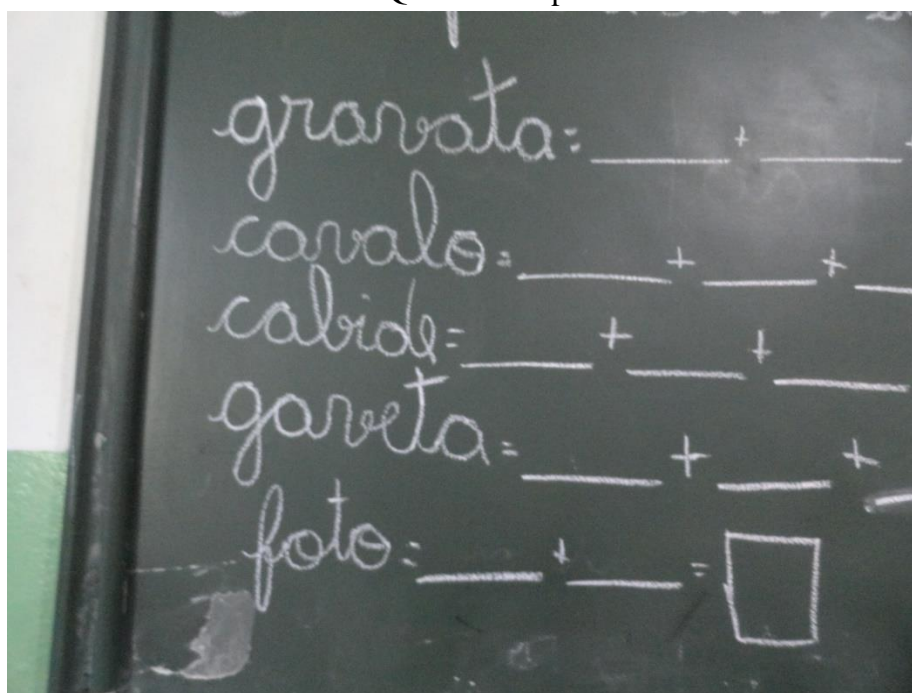 gravata = ____ + ____
cavalo = ____ + ____ + ____
cabide = ____ + ____ + ____
gaveta = ____ + ____ + ____
foto = ____ + ____ = □